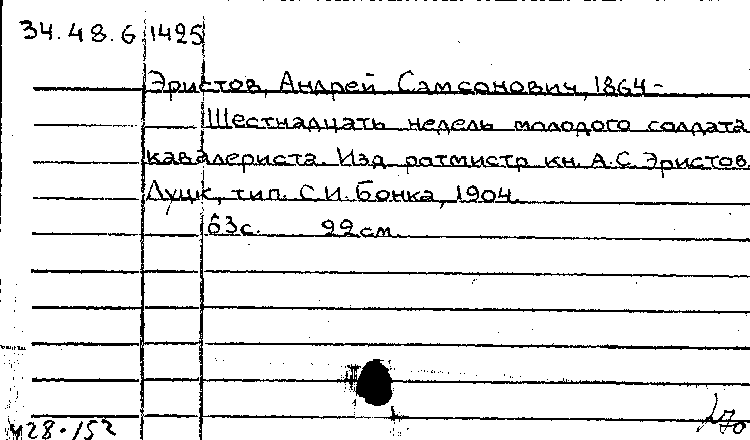 34.48.6 1425
Эристов, Андрей Самсонович, 1864-
Шестнадцать недель молодого солдата
кавалериста. Изд. ротмистр кн. А.С. Эристов.
Луцк, тип. С.И. Бонка, 1904.
63с. 22см.
428.152